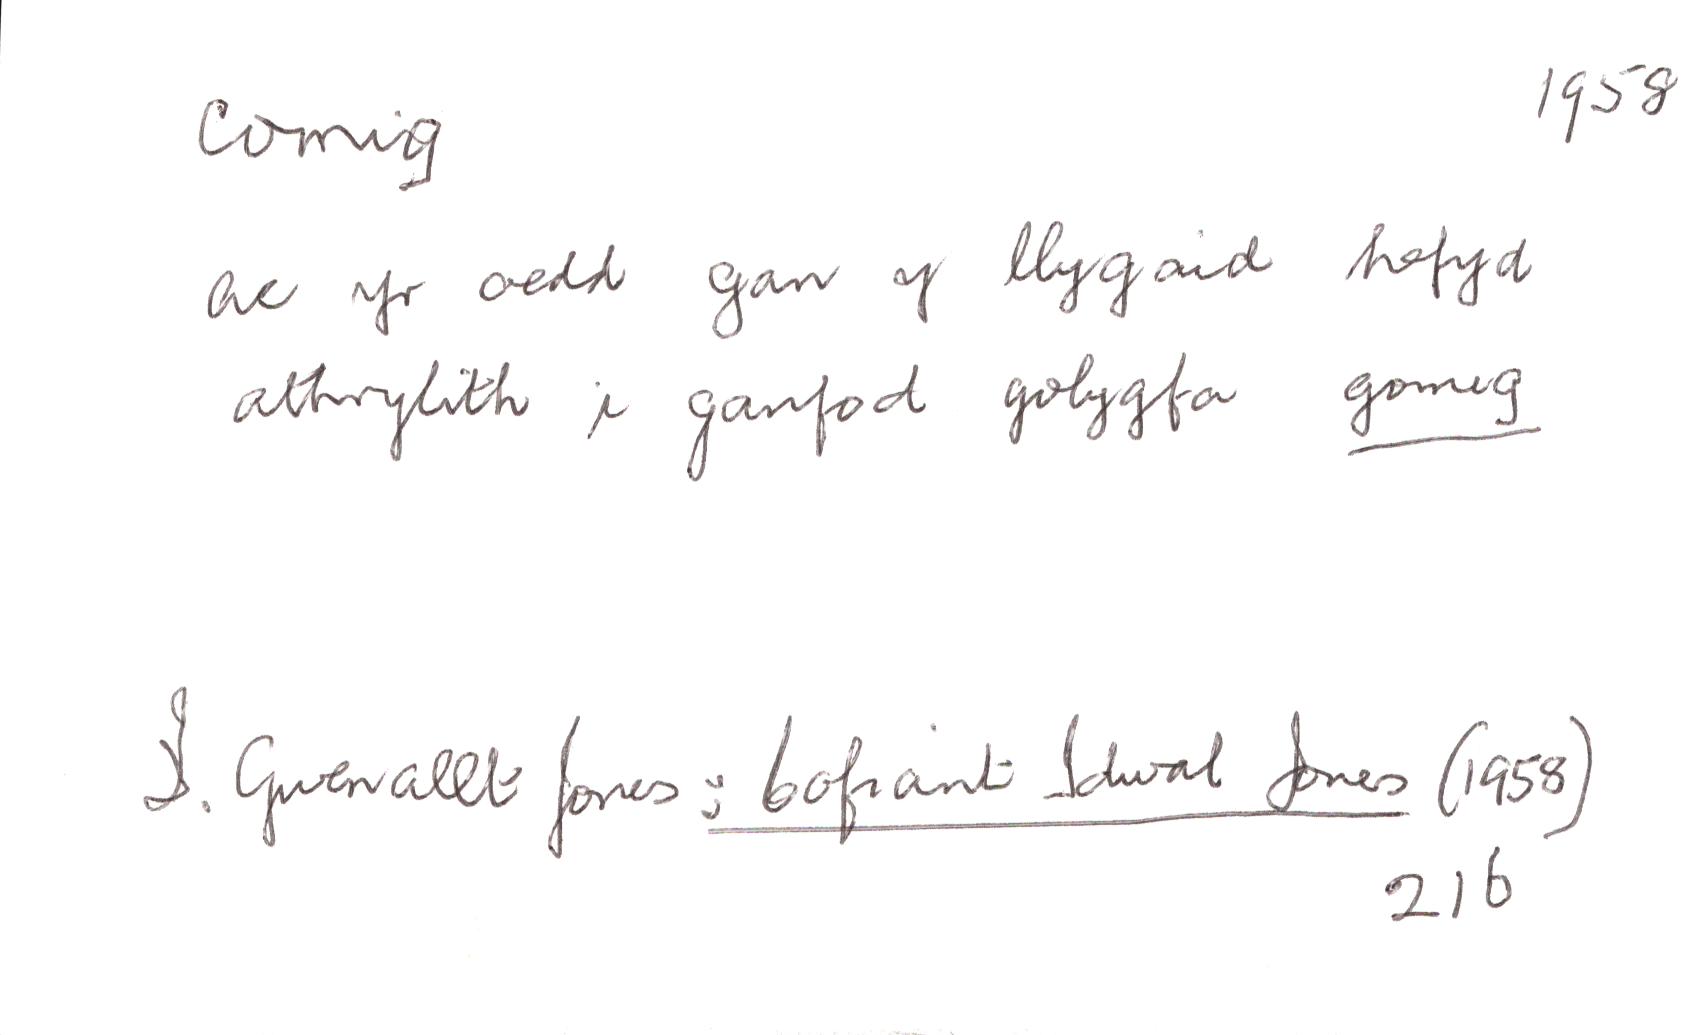 comig
1958
ac yr oedd gan y llygaid hefyd
athrylith i ganfod golygfa gomig
D. Gwenallt Jones: Cofiant Idwal Jones (1958)
216